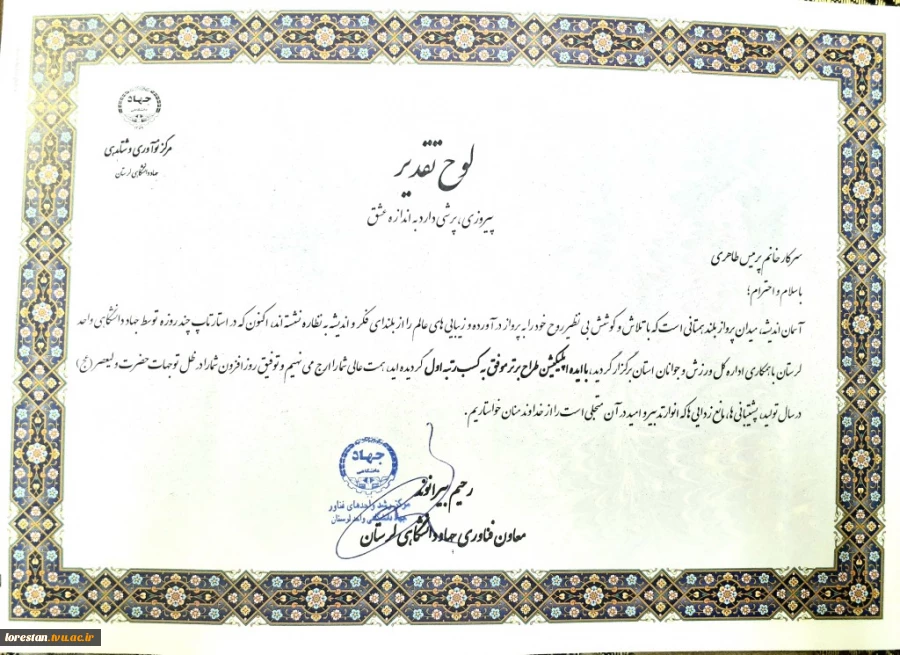 جهاد
دانشگاهی
مرکز نوآوری و شتابدهی
جهاد دانشگاهی لرستان
لوح تقدیر
پیروزی، پرشی دارد به اندازه عشق
سرکار خانم پرمیس طاهری
با سلام و احترام؛
آسمان اندیشه، میدان پرواز بلند همتانی است که با تلاش و کوشش بی نظیر روح خود را به پرواز درآورده و زیبایی های عالم را از بلندای فکر و اندیشه به نظاره نشسته اند، اکنون که در استارتاپ چند روزه توسط جهاد دانشگاهی واحد
لرستان با همکاری اداره کل ورزش و جوانان استان برگزار گردید، با ایده اپلیکیشن طراح برتر موفق به کسب رتبه اول گردیده اید، همت عالی شما را ارج می نهیم و توفیق روزافزون شما را در ظل توجهات حضرت ولیعصر(عج)
در سال تولید، پشتیبانی ها، مانع زدایی ها که انوار تدبیر و امید در آن متجلی است را از خداوند منان خواستاریم.
جهاد
دانشگاهی
مرکز رشد واحدهای فناور
جهاد دانشگاهی واحد لرستان
رحیم بیرانوند
معاون فناوری جهاد دانشگاهی لرستان
lorestan.tvu.ac.ir